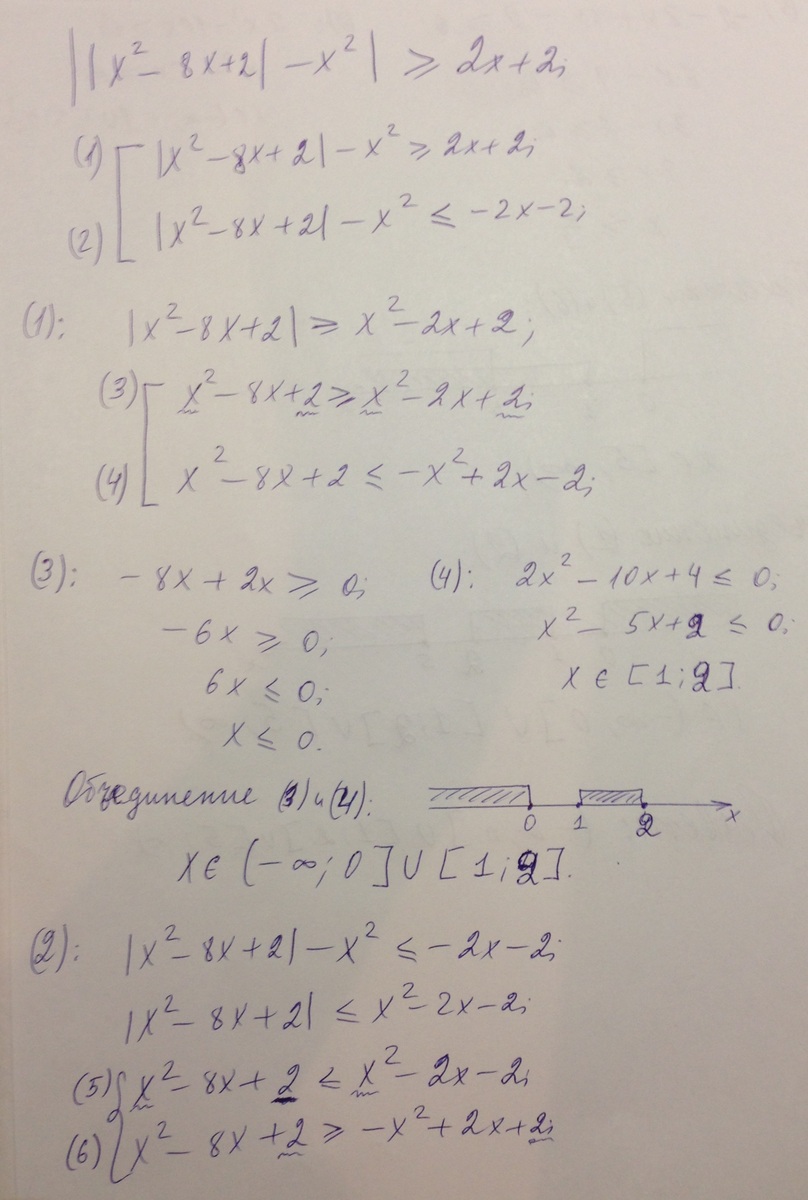 ||x² - 8x + 2| - x²| ⩾ 2x + 2;
(1) [ |x² - 8x + 2| - x² ⩾ 2x + 2;
(2) [ |x² - 8x + 2| - x² ⩽ -2x - 2;
(1): |x² - 8x + 2| ⩾ x² - 2x + 2;
(3) [ x² - 8x + 2 ⩾ x² - 2x + 2;
(4) [ x² - 8x + 2 ⩽ -x² + 2x - 2;
(3): -8x + 2x ⩾ 0;
-6x ⩾ 0;
6x ⩽ 0;
x ⩽ 0.
(4): 2x² - 10x + 4 ⩽ 0;
x² - 5x + 2 ⩽ 0;
x ∈ [1; 2].
Объединение (3) и (4):
0 1 2 x
x ∈ (-∞; 0] ∪ [1; 2].
(2): |x² - 8x + 2| - x² ⩽ -2x - 2;
|x² - 8x + 2| ⩽ x² - 2x - 2;
(5) { x² - 8x + 2 ⩽ x² - 2x - 2;
(6) { x² - 8x + 2 ⩾ -x² + 2x + 2;